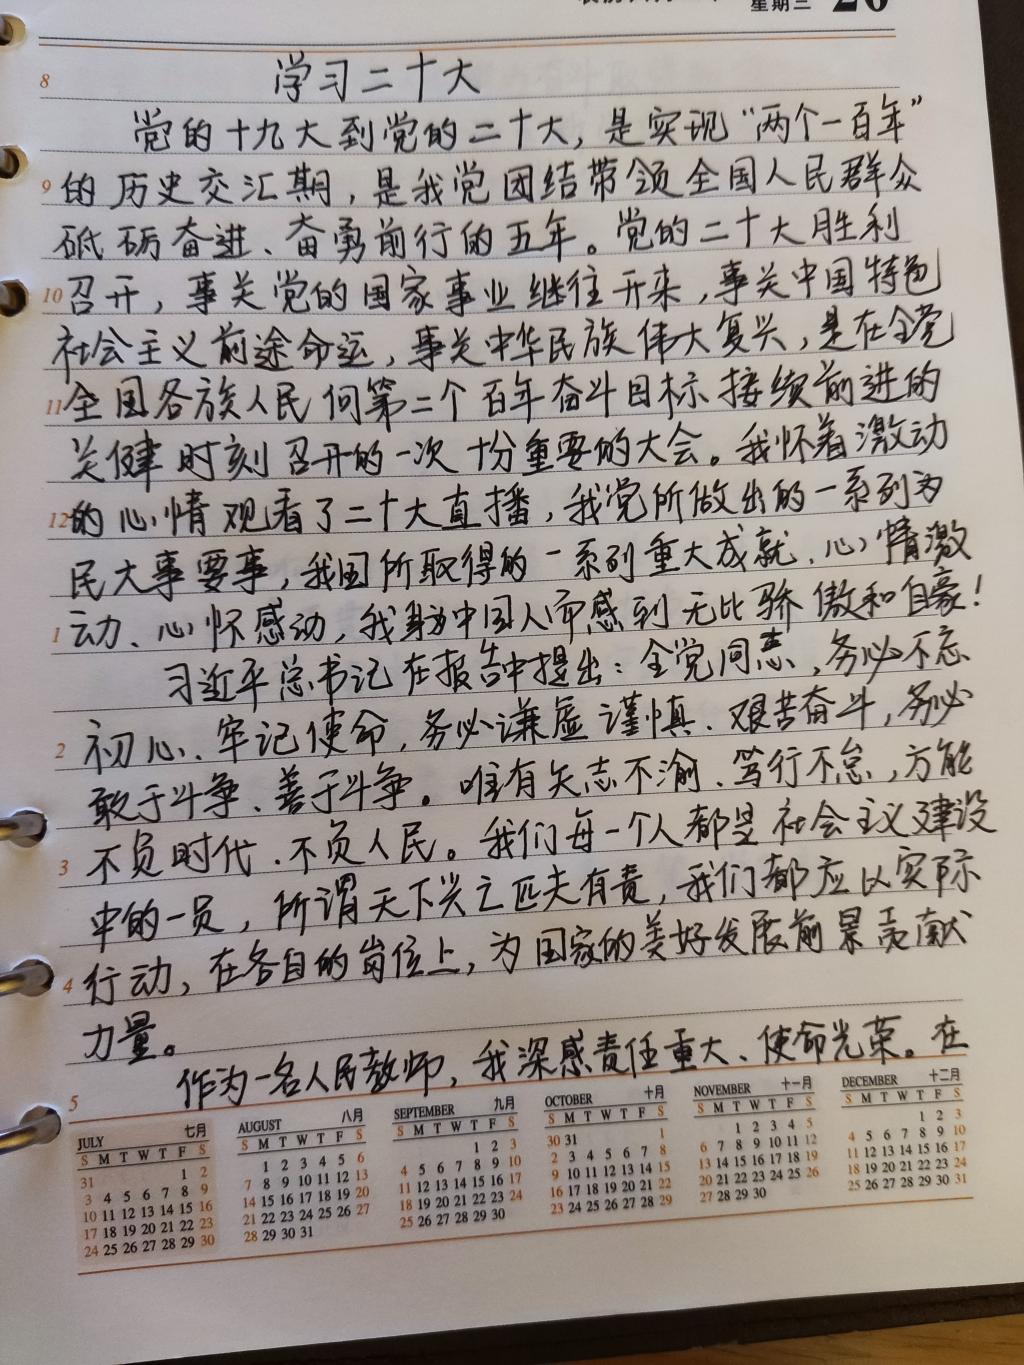 星期三 26
8 学习二十大
党的十九大到党的二十大，是实现“两个一百年”
9 的历史交汇期，是我党团结带领全国人民群众
砥砺奋进、奋勇前行的五年。党的二十大胜利
10 召开，事关党的国家事业继往开来，事关中国特色
社会主义前途命运，事关中华民族伟大复兴，是在全党
11 全国各族人民向第二个百年奋斗目标接续前进的
关健时刻召开的一次十分重要的大会。我怀着激动
12 的心情观看了二十大直播，我党所做出的一系列为
民大事要事，我国所取得的一系列重大成就、心情激
1 动、心怀感动，我身为中国人而感到无比骄傲和自豪！
习近平总书记在报告中提出：全党同志，务必不忘
2 初心、牢记使命，务必谦虚谨慎、艰苦奋斗，务必
敢于斗争、善于斗争。唯有矢志不渝、笃行不怠，方能
3 不负时代、不负人民。我们每一个人都是社会主义建设
中的一员，所谓天下兴亡匹夫有责，我们都应以实际
4 行动，在各自的岗位上，为国家的美好发展前景贡献
力量。
5 作为一名人民教师，我深感责任重大、使命光荣。在
JULY 七月
S M T W T F S
31 1 2
3 4 5 6 7 8 9
10 11 12 13 14 15 16
17 18 19 20 21 22 23
24 25 26 27 28 29 30
AUGUST 八月
S M T W T F S
1 2 3 4 5 6
7 8 9 10 11 12 13
14 15 16 17 18 19 20
21 22 23 24 25 26 27
28 29 30 31
SEPTEMBER 九月
S M T W T F S
1 2 3
4 5 6 7 8 9 10
11 12 13 14 15 16 17
18 19 20 21 22 23 24
25 26 27 28 29 30
OCTOBER 十月
S M T W T F S
30 31 1
2 3 4 5 6 7 8
9 10 11 12 13 14 15
16 17 18 19 20 21 22
23 24 25 26 27 28 29
NOVEMBER 十一月
S M T W T F S
1 2 3 4 5
6 7 8 9 10 11 12
13 14 15 16 17 18 19
20 21 22 23 24 25 26
27 28 29 30
DECEMBER 十二月
S M T W T F S
1 2 3
4 5 6 7 8 9 10
11 12 13 14 15 16 17
18 19 20 21 22 23 24
25 26 27 28 29 30 31